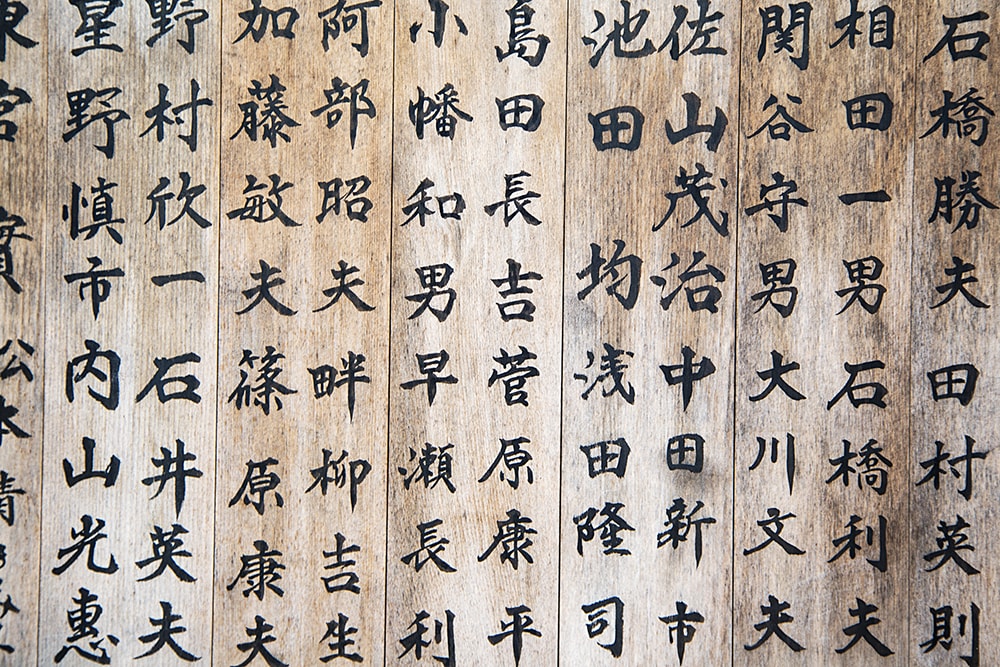 石橋勝夫田村英則
相田一男石橋利夫
関谷守男大川文夫
佐山茂治中田新市
池田均浅田隆司
島田長吉菅原康平
小幡和男早瀬長利
阿部昭夫畔柳吉生
加藤敏夫篠原康夫
野村欣一石井英夫
星野慎市内山光惠
東宮實松本清